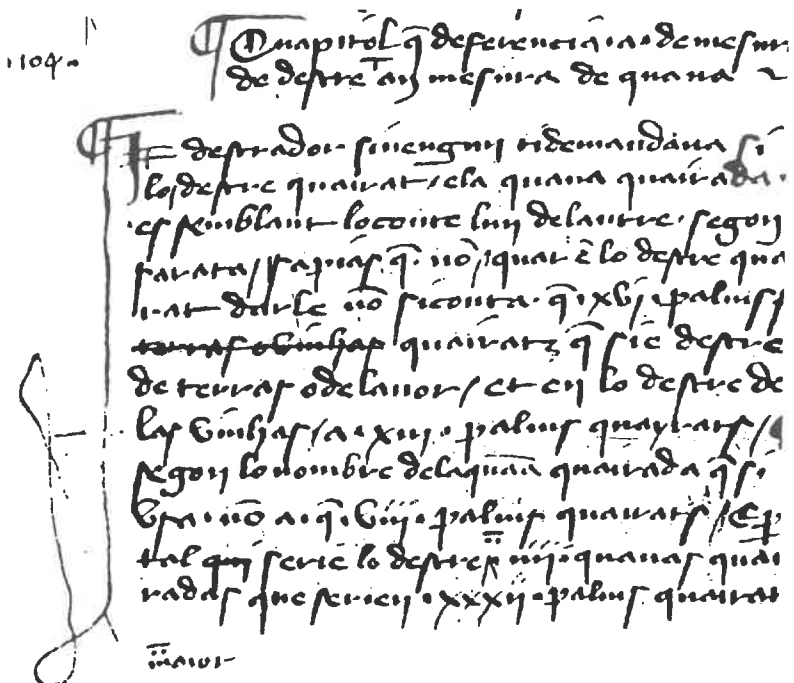 1104
Quapitol q̄ deferencia · a · de mesur
de destre an mesura de quana
E destrador si nengun ti demandava si
lo destre quairat / e la quana quairada ·
es semblant lo conte lun del autre · segon
sa rata / sapias q̄ · nō / quar ē lo destre qua
rat darle nō si conta · q̄ · xvj · palms
terras o vinhas quairatz q̄ sie destre
de terras o de lavor / et en lo destre de
las vinhas / a · xiii · palms quayrats /
segon lo nombre de la quana quairada q̄ si
usa · nō a · q̄ · viii · palms quairats / E p
tal qui serie lo destre iiii · quanas quai
radas que serien · xxxii · palms quairat
maior